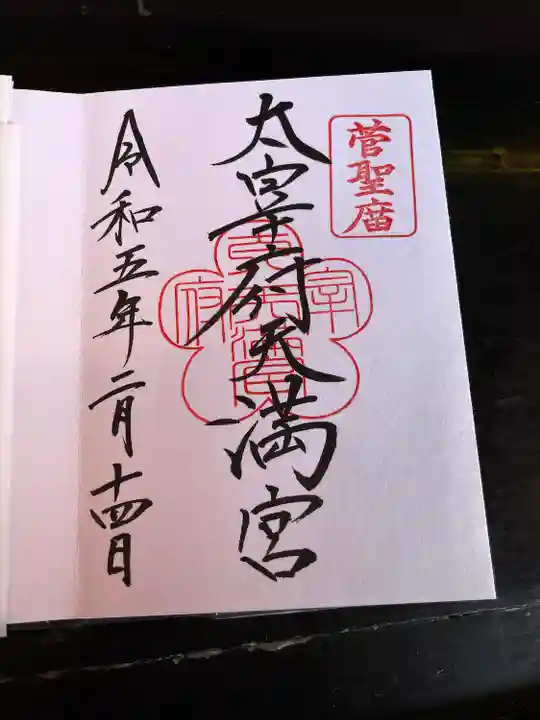 菅聖庿
太宰府天満宮
令和五年二月十四日